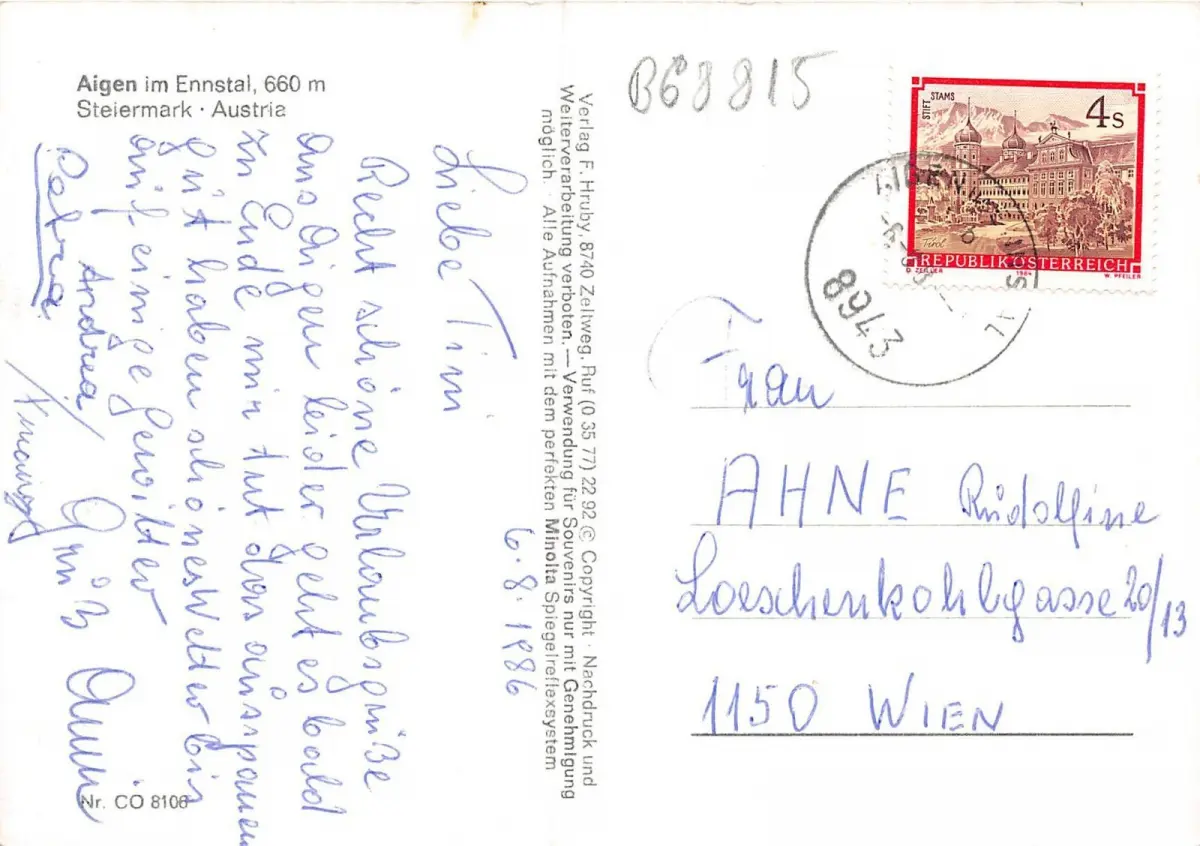 Aigen im Ennstal, 660 m
Steiermark · Austria
6.8.1986
Liebe Tini
Recht schöne Urlaubsgrüße
aus Aigen leider geht es bald
zu Ende mir tut das
gut haben schönes Wetter bis
auf einige Gewitter
Petra Andrea Gruß
Nr. CO 8106
Verlag F. Hruby, 8740 Zeltweg, Ruf (0 35 77) 22 92 © Copyright · Nachdruck und
Weiterverarbeitung verboten. — Verwendung für Souvenirs nur mit Genehmigung
möglich. · Alle Aufnahmen mit dem perfekten Minolta Spiegelreflexsystem
B68815
STIFT STAMS
4S
Tirol
REPUBLIK ÖSTERREICH
D. ZEILLER 1984 W. PFEILER
8943
Frau
AHNE Rudolfine
Loeschenkohlgasse 20/13
1150 WIEN